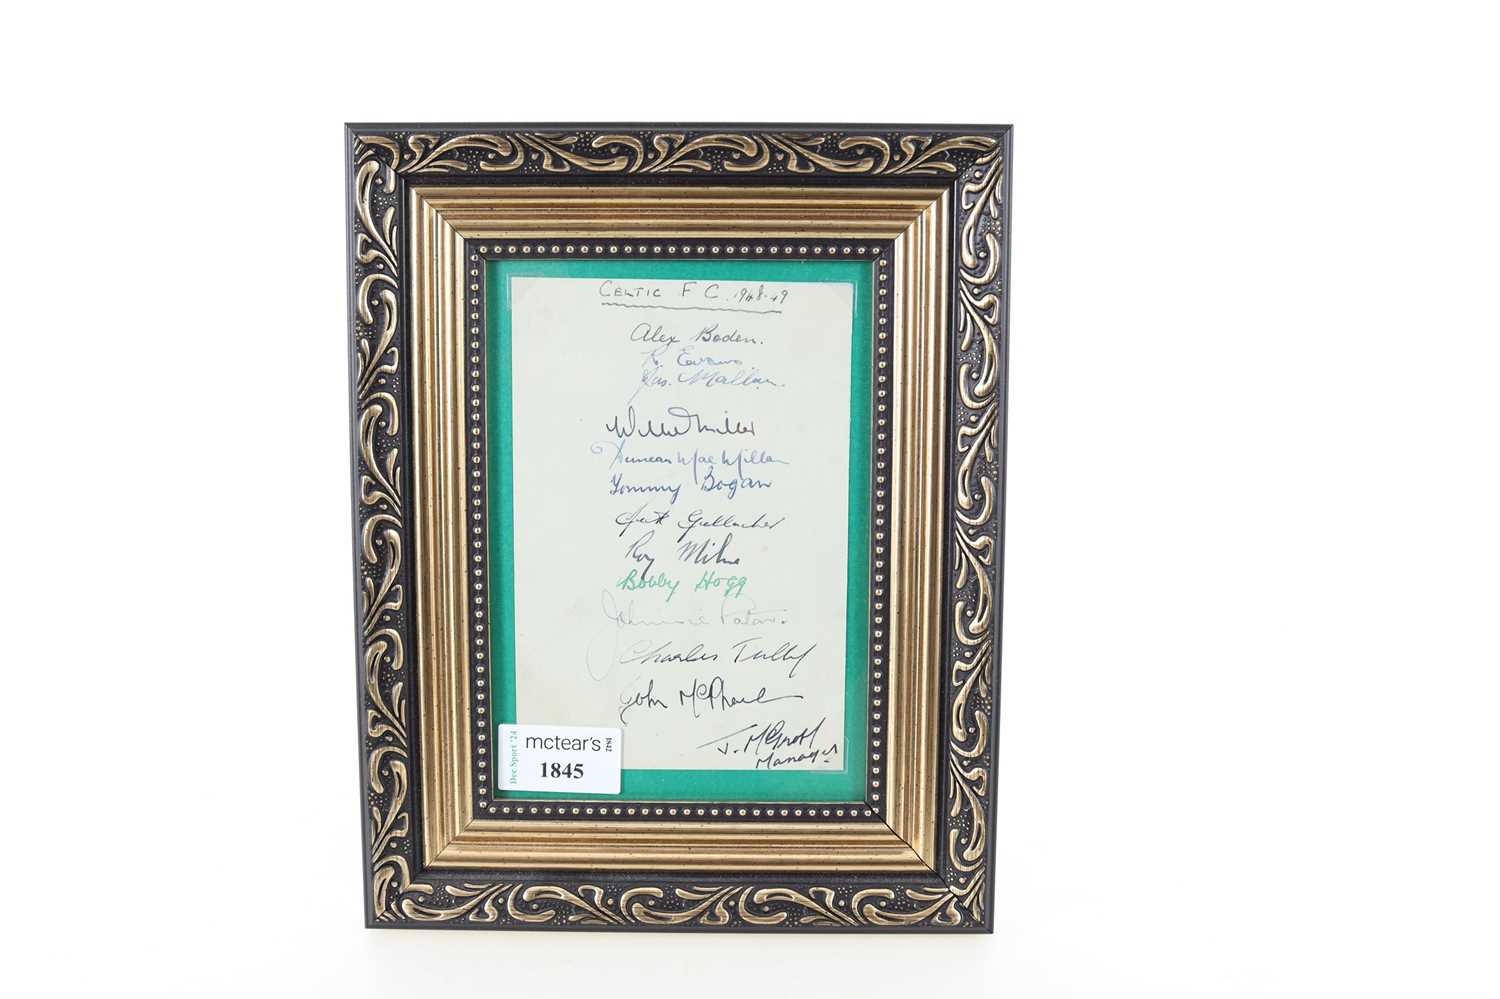 CELTIC F C. 1948-49
Alex Boden.
R. Evans
Jas. Mallan.
Willie Miller
Duncan MacMillan
Tommy Bogan
Gallacher
Roy Milne
Bobby Hogg
Johnnie Paton.
Charles Tully
John McPhail
J. McGrory
Manager.
mctear's 1842
1845
Dec Sport '24